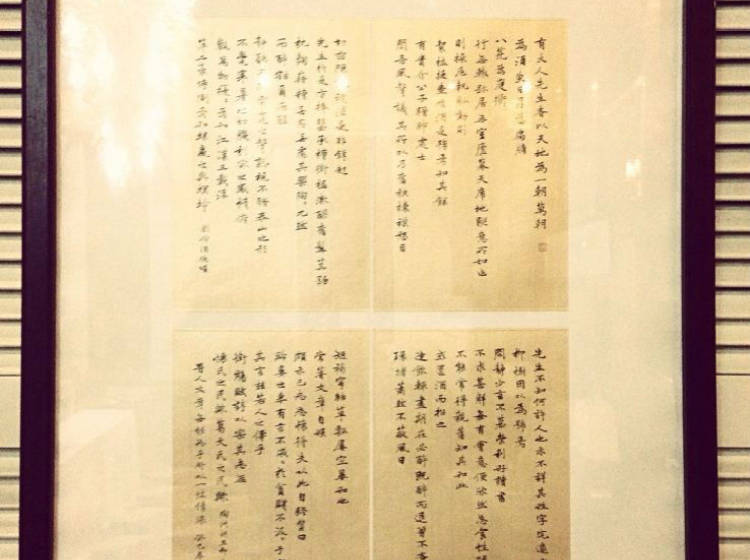 有大人先生者以天地為一朝萬朝
為須臾日月為扃牖
八荒為庭衢
行無轍跡居無室廬幕天席地縱意所如止
則操卮執觚動則
挈榼提壺唯酒是務焉知其餘
有貴介公子搢紳處士
聞吾風聲議其所以乃奮袂攘襟怒目
切齒陳說禮法是非鋒起
先生於是方捧甖承槽銜杯漱醪奮髯箕踞
枕麴藉糟無思無慮其樂陶々兀然
而醉豁爾而醒
靜聽不聞雷霆之聲熟視不睹泰山之形
不覺寒暑之切肌利欲之感情俯
觀萬物擾々焉如江漢之載浮
二豪侍側焉如蜾蠃之與螟蛉 劉伶酒德頌
先生不知何許人也亦不詳其姓字宅邊
柳樹因以為號焉
閑靜少言不慕榮利好讀書
不求甚解每有會意便欣然忘食性
不能常得親舊知其如此
或置酒而招之
造飲輒盡期在必醉既醉而退曾不吝
環堵蕭然不蔽風日
短褐穿結簞瓢屢空晏如也
常著文章自娛
頗示己志忘懷得失以此自終贊曰
黔婁之妻有言不戚々於貧賤不汲々于
其言茲若人之儔乎
銜觴賦詩以樂其志無
懷氏之民歟葛天氏之民歟 陶淵明五柳
晉人文章